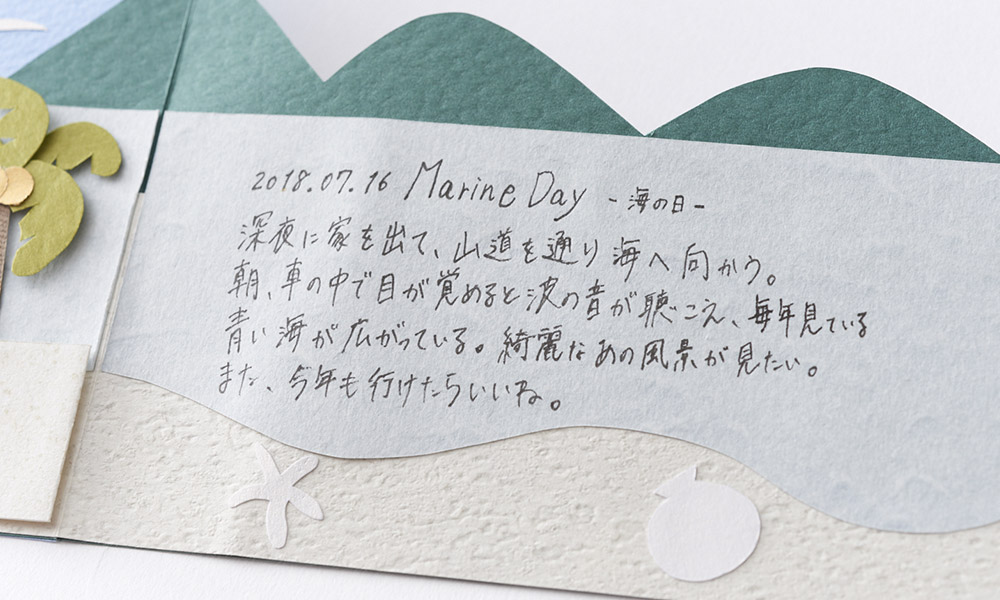 2018.07.16 Marine Day -海の日-
深夜に家を出て、山道を通り海へ向かう。
朝、車の中で目が覚めると波の音が聴こえ、毎年見ている
青い海が広がっている。綺麗なあの風景が見たい。
また、今年も行けたらいいね。